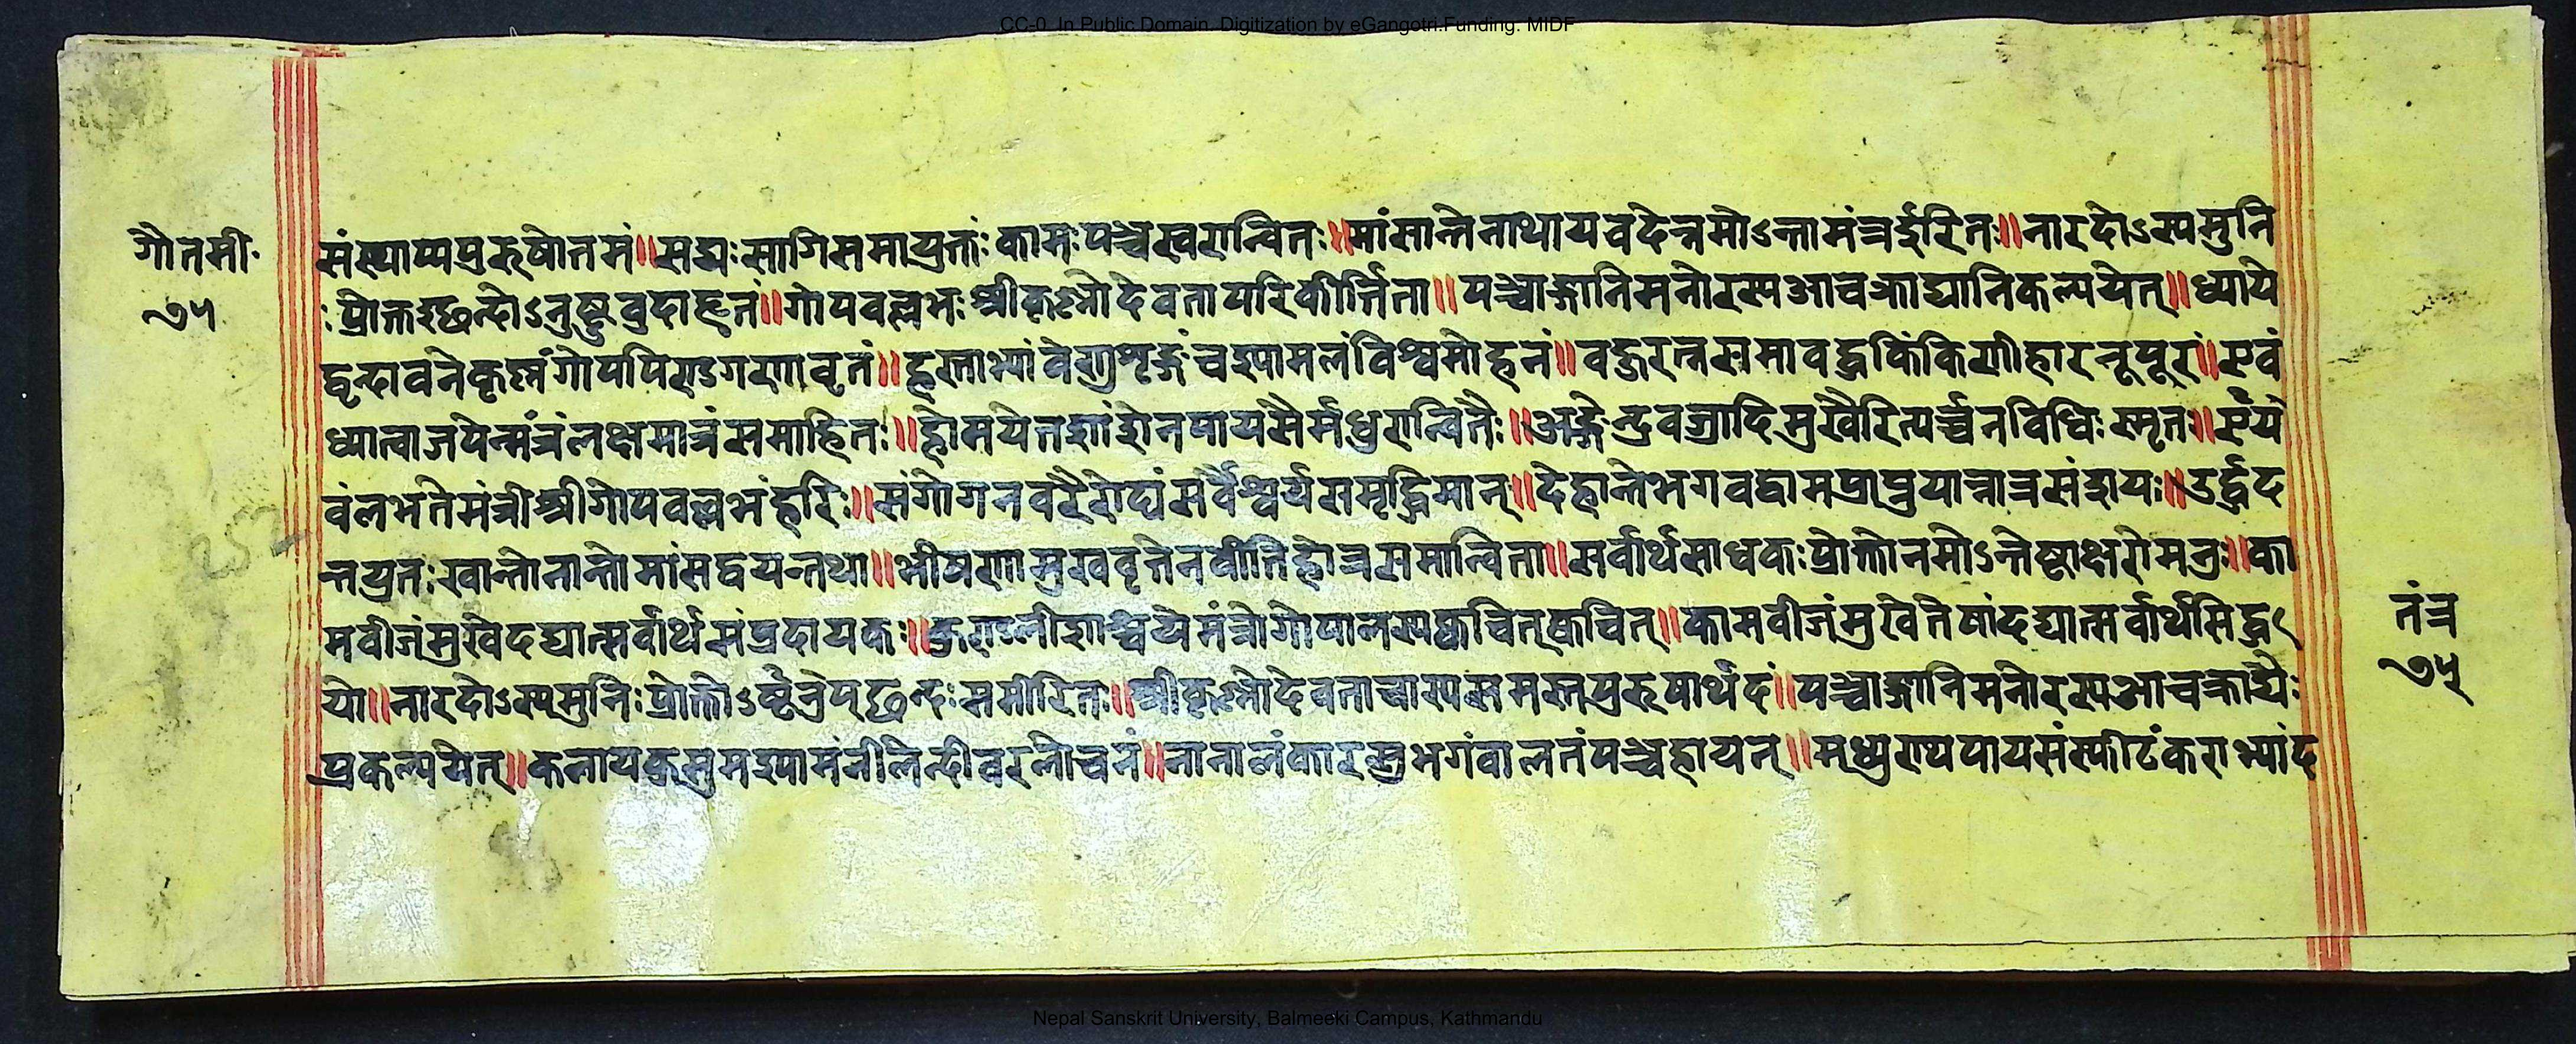 CC-0. In Public Domain. Digitization by eGangotri.Funding. MIDF
गौतमी
७५
संस्थाप्यपुरुषोतमं॥सद्यःसागिसमायुक्तःकामःपञ्चस्वरान्वितः॥मांसान्तेनाथायवदेन्नमोऽन्तामंत्रईरितः॥नारदोऽस्यमुनि
ःप्रोक्तश्छन्दोऽनुष्टुवुदाहृतं॥गोपवल्लभःश्रीकृश्नोदेवतापरिकीर्त्तिता॥पञ्चाङ्गानिमनोरस्यआचक्राद्यानिकल्पयेत्॥ध्याये
द्वृन्दावनेकृष्नंगोपपिण्डगणावृतं॥हस्ताभ्यांवेणुशृङ्गंचश्यामलंविश्वमोहनं॥वज्ररत्नसमावद्धकिंकिणीहारनूपूरं॥एवं
ध्यात्वाजपेन्मंत्रंलक्षमात्रंसमाहितः॥होमयेत्तद्दशांशेनपायसैर्मधुरान्वितैः॥अङ्गेन्द्रवज्रादिमुखैरित्यर्च्चनविधिःस्मृतः॥
वंलभतेमंत्रीश्रीगोपवल्लभंहरिः॥सर्वैश्वर्यसमृद्धिमान्॥देहान्तेभगवद्धामप्राप्नुयान्नात्रसंशयः॥उर्द्धद
न्तयुतःखान्तोनान्तोमांसद्वयन्तथा॥भीषणामुखवृत्तेनवीतिहोत्रसमान्विता॥सर्वार्थसाधकःप्रोक्तोनमोऽन्तेष्टाक्षरोमनुः॥का
मवीजंमुखेदद्यात्सर्वार्थसंप्रदायकः॥गोपालस्यक्वचित्क्वचित्॥कामवीजंमुखेतेषांदद्यात्सर्वार्थसिद्ध
तंत्र
७५
यो॥नारदोऽस्यमुनिःप्रोक्तोऽछन्दःसमीरितः॥श्रीकृश्नोदेवताचास्यसमस्तपुरुषार्थदं॥पञ्चाङ्गानिमनोरस्यआचक्राद्यैः
प्रकल्पयेत्॥कलायकुसुमश्यामंनीलेन्दीवरलोचनं॥नानालंकारसुभगंवालतंपञ्चहायन्॥पायसंस्फीटंकराभ्यांद
Nepal Sanskrit University, Balmeeki Campus, Kathmandu